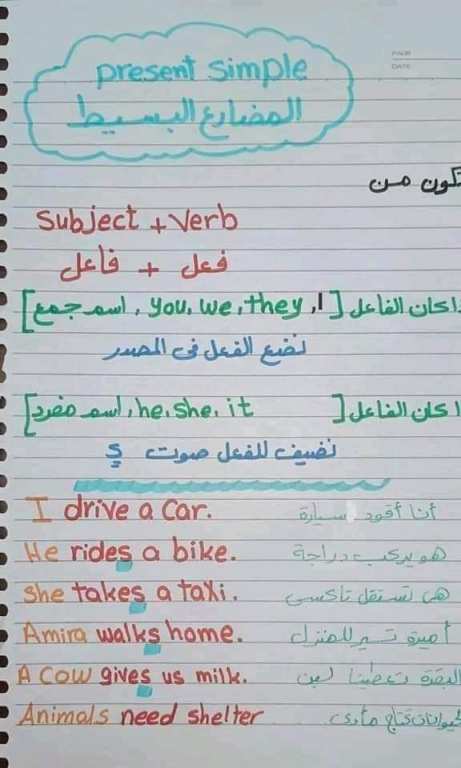 PAGE
DATE
present simple
المضارع البسيط
تكون من
Subject + Verb
فعل + فاعل
اكان الفاعل [ I, you, we, they, اسم جمع ]
نضع الفعل في المصدر
اكان الفاعل [ he, she, it, اسم مفرد ]
نضيف للفعل صوت S
I drive a car. أنا أقود سيارة
He rides a bike. هو يركب دراجة
She takes a taxi. هى تستقل تاكسى
Amira walks home. أميرة تسير للمنزل
A cow gives us milk. البقرة تعطينا لبن
Animals need shelter حيوانات تحتاج مأوى